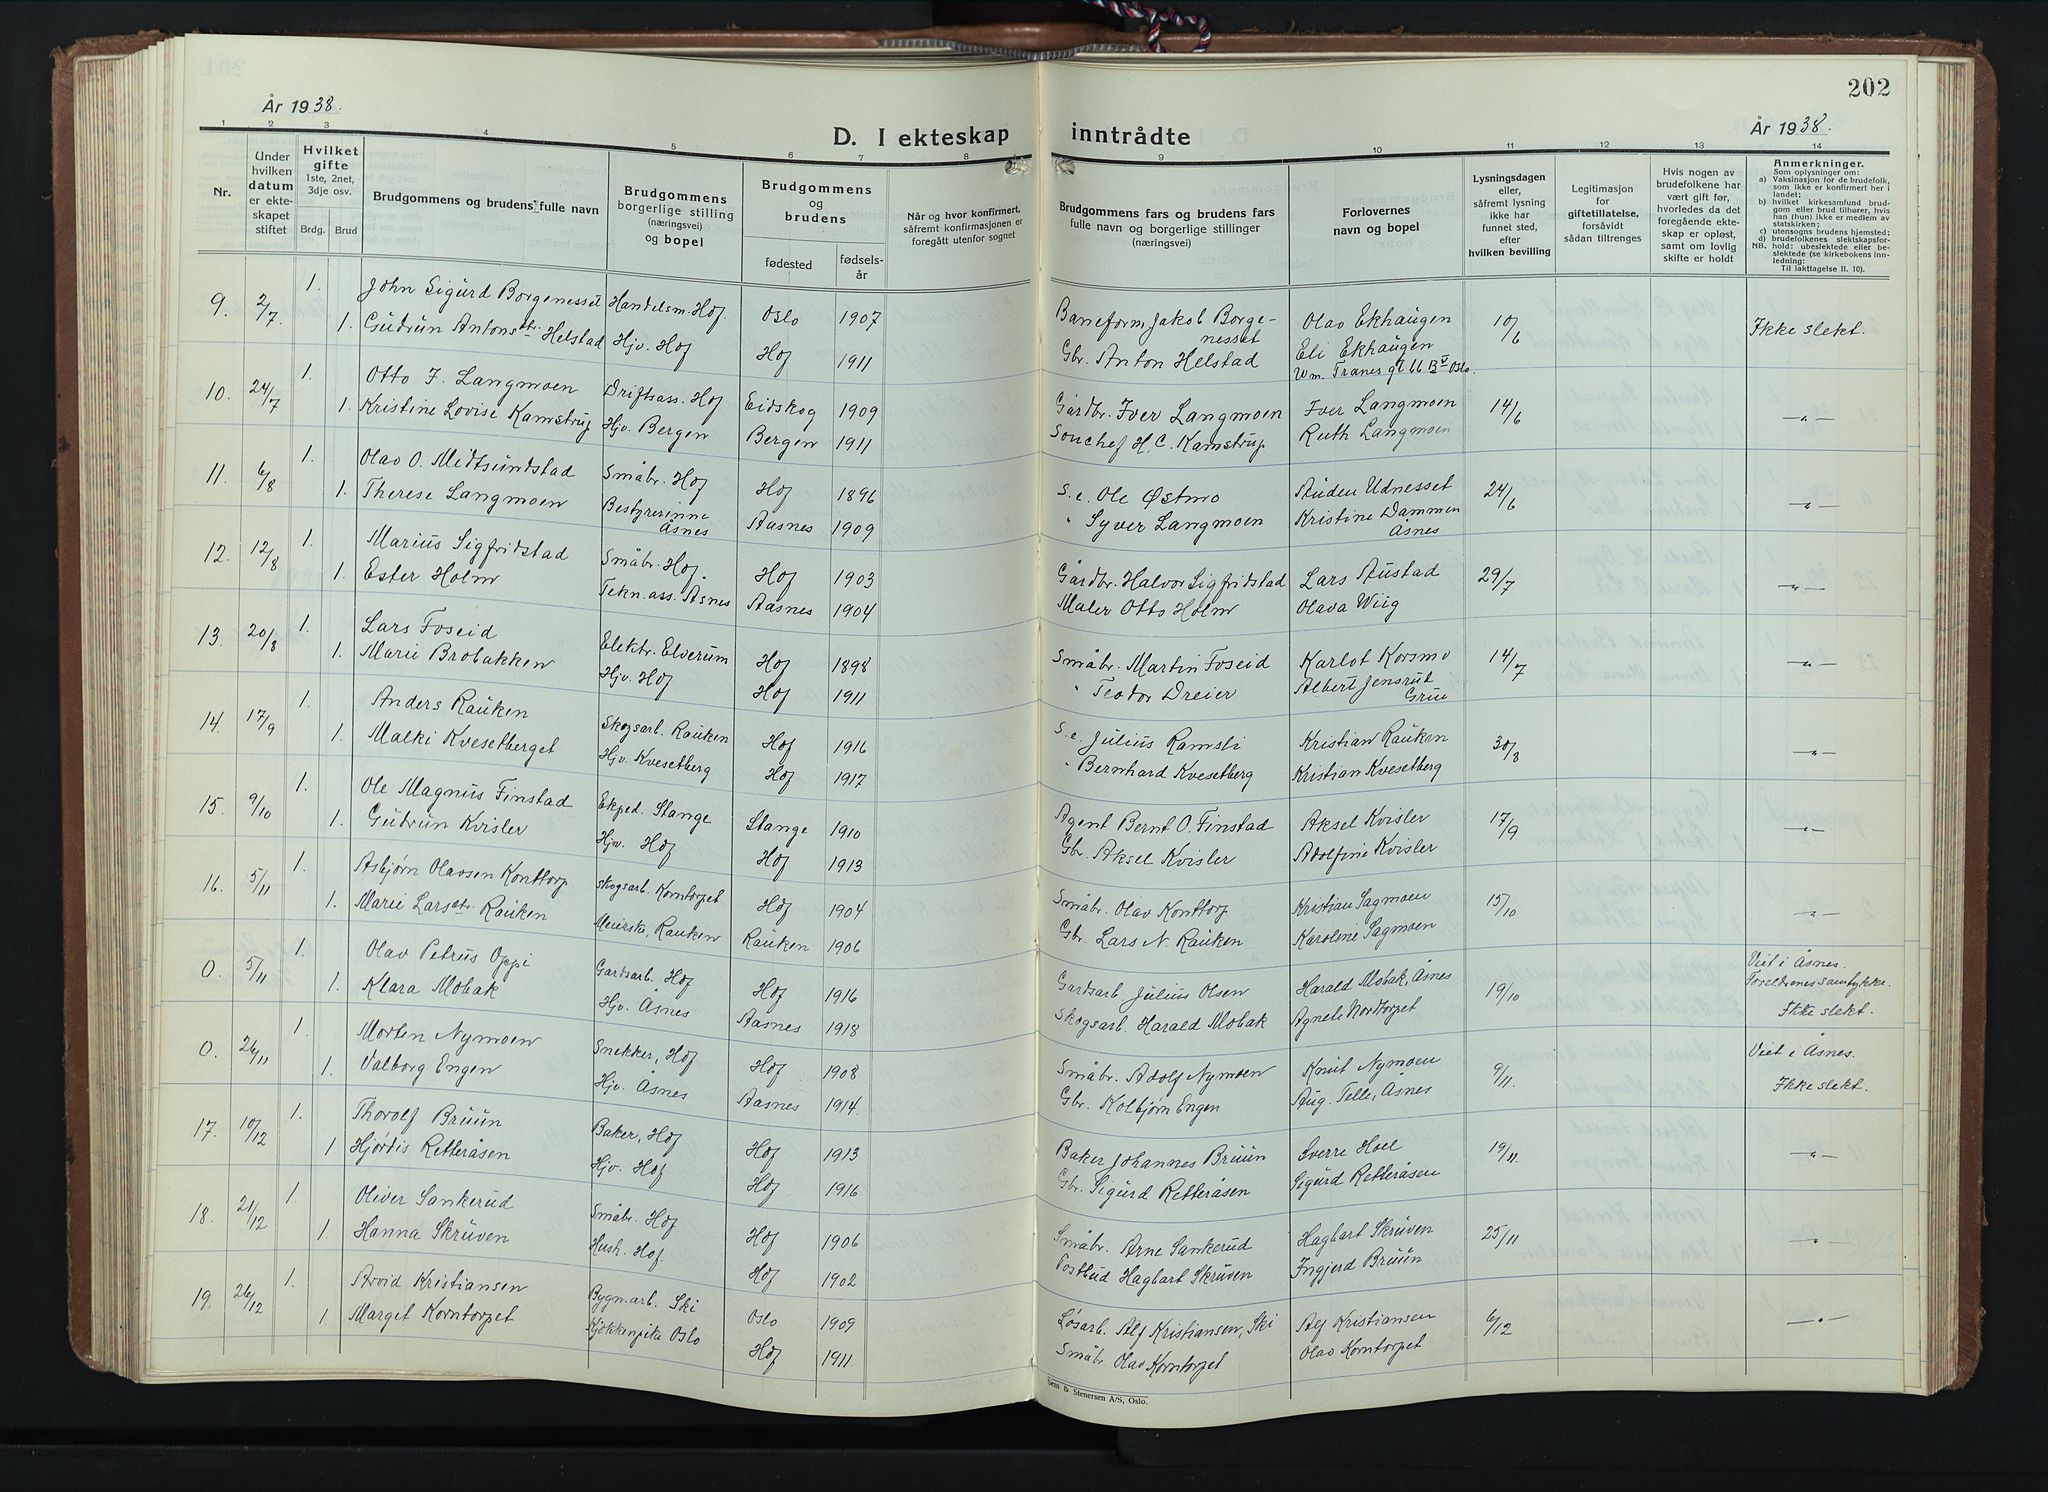 202
År 1938.
År 1938.
D. I ekteskap inntrådte
1 2 3 4 5 6 7 8 9 10 11 12 13 14
Nr.
Under hvilken datum er ekteskapet stiftet
Hvilket gifte 1ste, 2net, 3dje osv.
Brdg. Brud
Brudgommens og brudens fulle navn
Brudgommens borgerlige stilling (næringsvei) og bopel
Brudgommens og brudens
fødested
fødselsår
Når og hvor konfirmert, såfremt konfirmasjonen er foregått utenfor sognet
Brudgommens fars og brudens fars fulle navn og borgerlige stillinger (næringsvei)
Forlovernes navn og bopel
Lysningsdagen eller, såfremt lysning ikke har funnet sted, efter hvilken bevilling
Legitimasjon for giftetillatelse, forsåvidt sådan tiltrenges
Hvis nogen av brudefolkene har vært gift før, hvorledes da det foregående ekteskap er opløst, samt om lovlig skifte er holdt
Anmerkninger.
Som oplysninger om:
a) Vaksinasjon for de brudefolk, som ikke er konfirmert her i landet;
b) hvilket kirkesamfund brudgom eller brud tilhører, hvis han (hun) ikke er medlem av statskirken;
c) utensogns brudens hjemsted;
d) brudefolkenes slektskapsforhold: ubeslektede eller beslektede (se kirkebokens innledning:
NB.
Til iakttagelse II. 10).
9. 2/7 1. John Sigurd Borgenesset Handelsm. Hof. Oslo 1907 Baneform. Jakob Borgenesset Olav Ekhaugen 10/6 Ikke slekt.
1. Gudrun Antonsdtr. Helstad Hjv. Hof Hof 1911 Gbr. Anton Helstad Eli Ekhaugen
Wm. Tranes gt 66 B V Oslo.
10. 24/7 1. Otto F. Langmoen Driftsass. Hof Eidskog 1909 Gårdbr. Iver Langmoen Iver Langmoen 14/6 -"-
1. Kristine Lovise Kamstrup Hjv. Bergen Bergen 1911 Souchef H. C. Kamstrup Ruth Langmoen
11. 6/8 1. Olav O. Midtsundstad Småbr. Hof Hof 1896 S.e. Ole Østmo Auden Udnesset 24/6 -"-
1. Therese Langmoen Bestyrerinne Åsnes Aasnes 1909 " Syver Langmoen Kristine Dammen Åsnes
12. 12/8 1. Marius Sigfridstad Småbr. Hof. Hof 1903 Gårdbr. Halvor Sigfridstad Lars Austad 29/7 -"-
1. Ester Holm Tekn. ass. Åsnes Aasnes 1904 Maler Otto Holm Olava Wiig
13. 20/8 1. Lars Foseid Elektr. Elverum Hof 1898 Småbr. Martin Foseid Karlot Korsmo 14/7 -"-
1. Marie Brobakken Hjv. Hof Hof 1911 " Teodor Dreier Albert Jensrud Grue
14. 17/9 1. Anders Rauken Skogsarb. Rauken Hof 1916 S.e. Julius Ramsli Kristian Rauken 30/8 -"-
1. Malki Kvesetberget Hjv. Kvesetberg Hof 1917 " Bernhard Kvesetberg Kristian Kvesetberg
15. 9/10 1. Ole Magnus Finstad Ekped. Stange Stange 1910 Agent Bernt O. Finstad Aksel Kvisler 17/9 -"-
1. Gudrun Kvisler Hjv. Hof Hof 1913 Gbr. Aksel Kvisler Adolfine Kvisler
16. 5/11 1. Asbjørn Olavsen Konttorp Skogsarb. Korntorpet Hof 1904 Småbr. Olav Konttorp Kristian Sagmoen 15/10 -"-
1. Marie Larsdtr. Rauken Meierske, Rauken Rauken 1906 Gbr. Lars N. Rauken Karoline Sagmoen
0. 5/11 1. Olav Petrus Oppi Gardsarb. Hof Hof 1916 Gardsarb. Julius Olsen Harald Mobak, Åsnes 19/10 Viet i Åsnes. Foreldrenes samtykke.
1. Klara Mobak Hjv. Åsnes Aasnes 1918 Skogsarb. Harald Mobak Agnete Nordtorpet Ikke slekt.
0. 26/11 1. Morten Nymoen Snekker, Hof Hof 1908 Småbr. Adolf Nymoen Knut Nymoen 9/11. Viet i Åsnes.
1. Valborg Engen Hjv. Åsnes Aasnes 1914 Gbr. Kolbjørn Engen Aug. Telle, Åsnes Ikke slekt.
17. 10/12 1. Thorolf Bruun Baker, Hof Hof 1913 Baker Johannes Bruun Sverre Hoel 19/11. -"-
1. Hjørdis Retteråsen Hjv. Hof Hof 1916 Gbr. Sigurd Retteråsen Sigurd Retteråsen
18. 21/12 1. Oliver Sankerud Småbr. Hof Hof 1906 Småbr. Arne Sankerud Hagbart Skruven 25/11 -"-
1. Hanna Skruven Hush. Hof. Hof 1902 Postbud Hagbart Skruven Ingjerd Bruun
19. 26/12 1. Arvid Kristiansen Bygn.arb. Ski Oslo 1909 Løsarb. Alf Kristiansen, Ski Alf Kristiansen 6/12 -"-
1. Margit Korntorpet Kjøkkenpike Oslo Hof 1911 Småbr. Olav Korntorpet Olav Korntorpet
Sem & Stenersen A/S, Oslo.